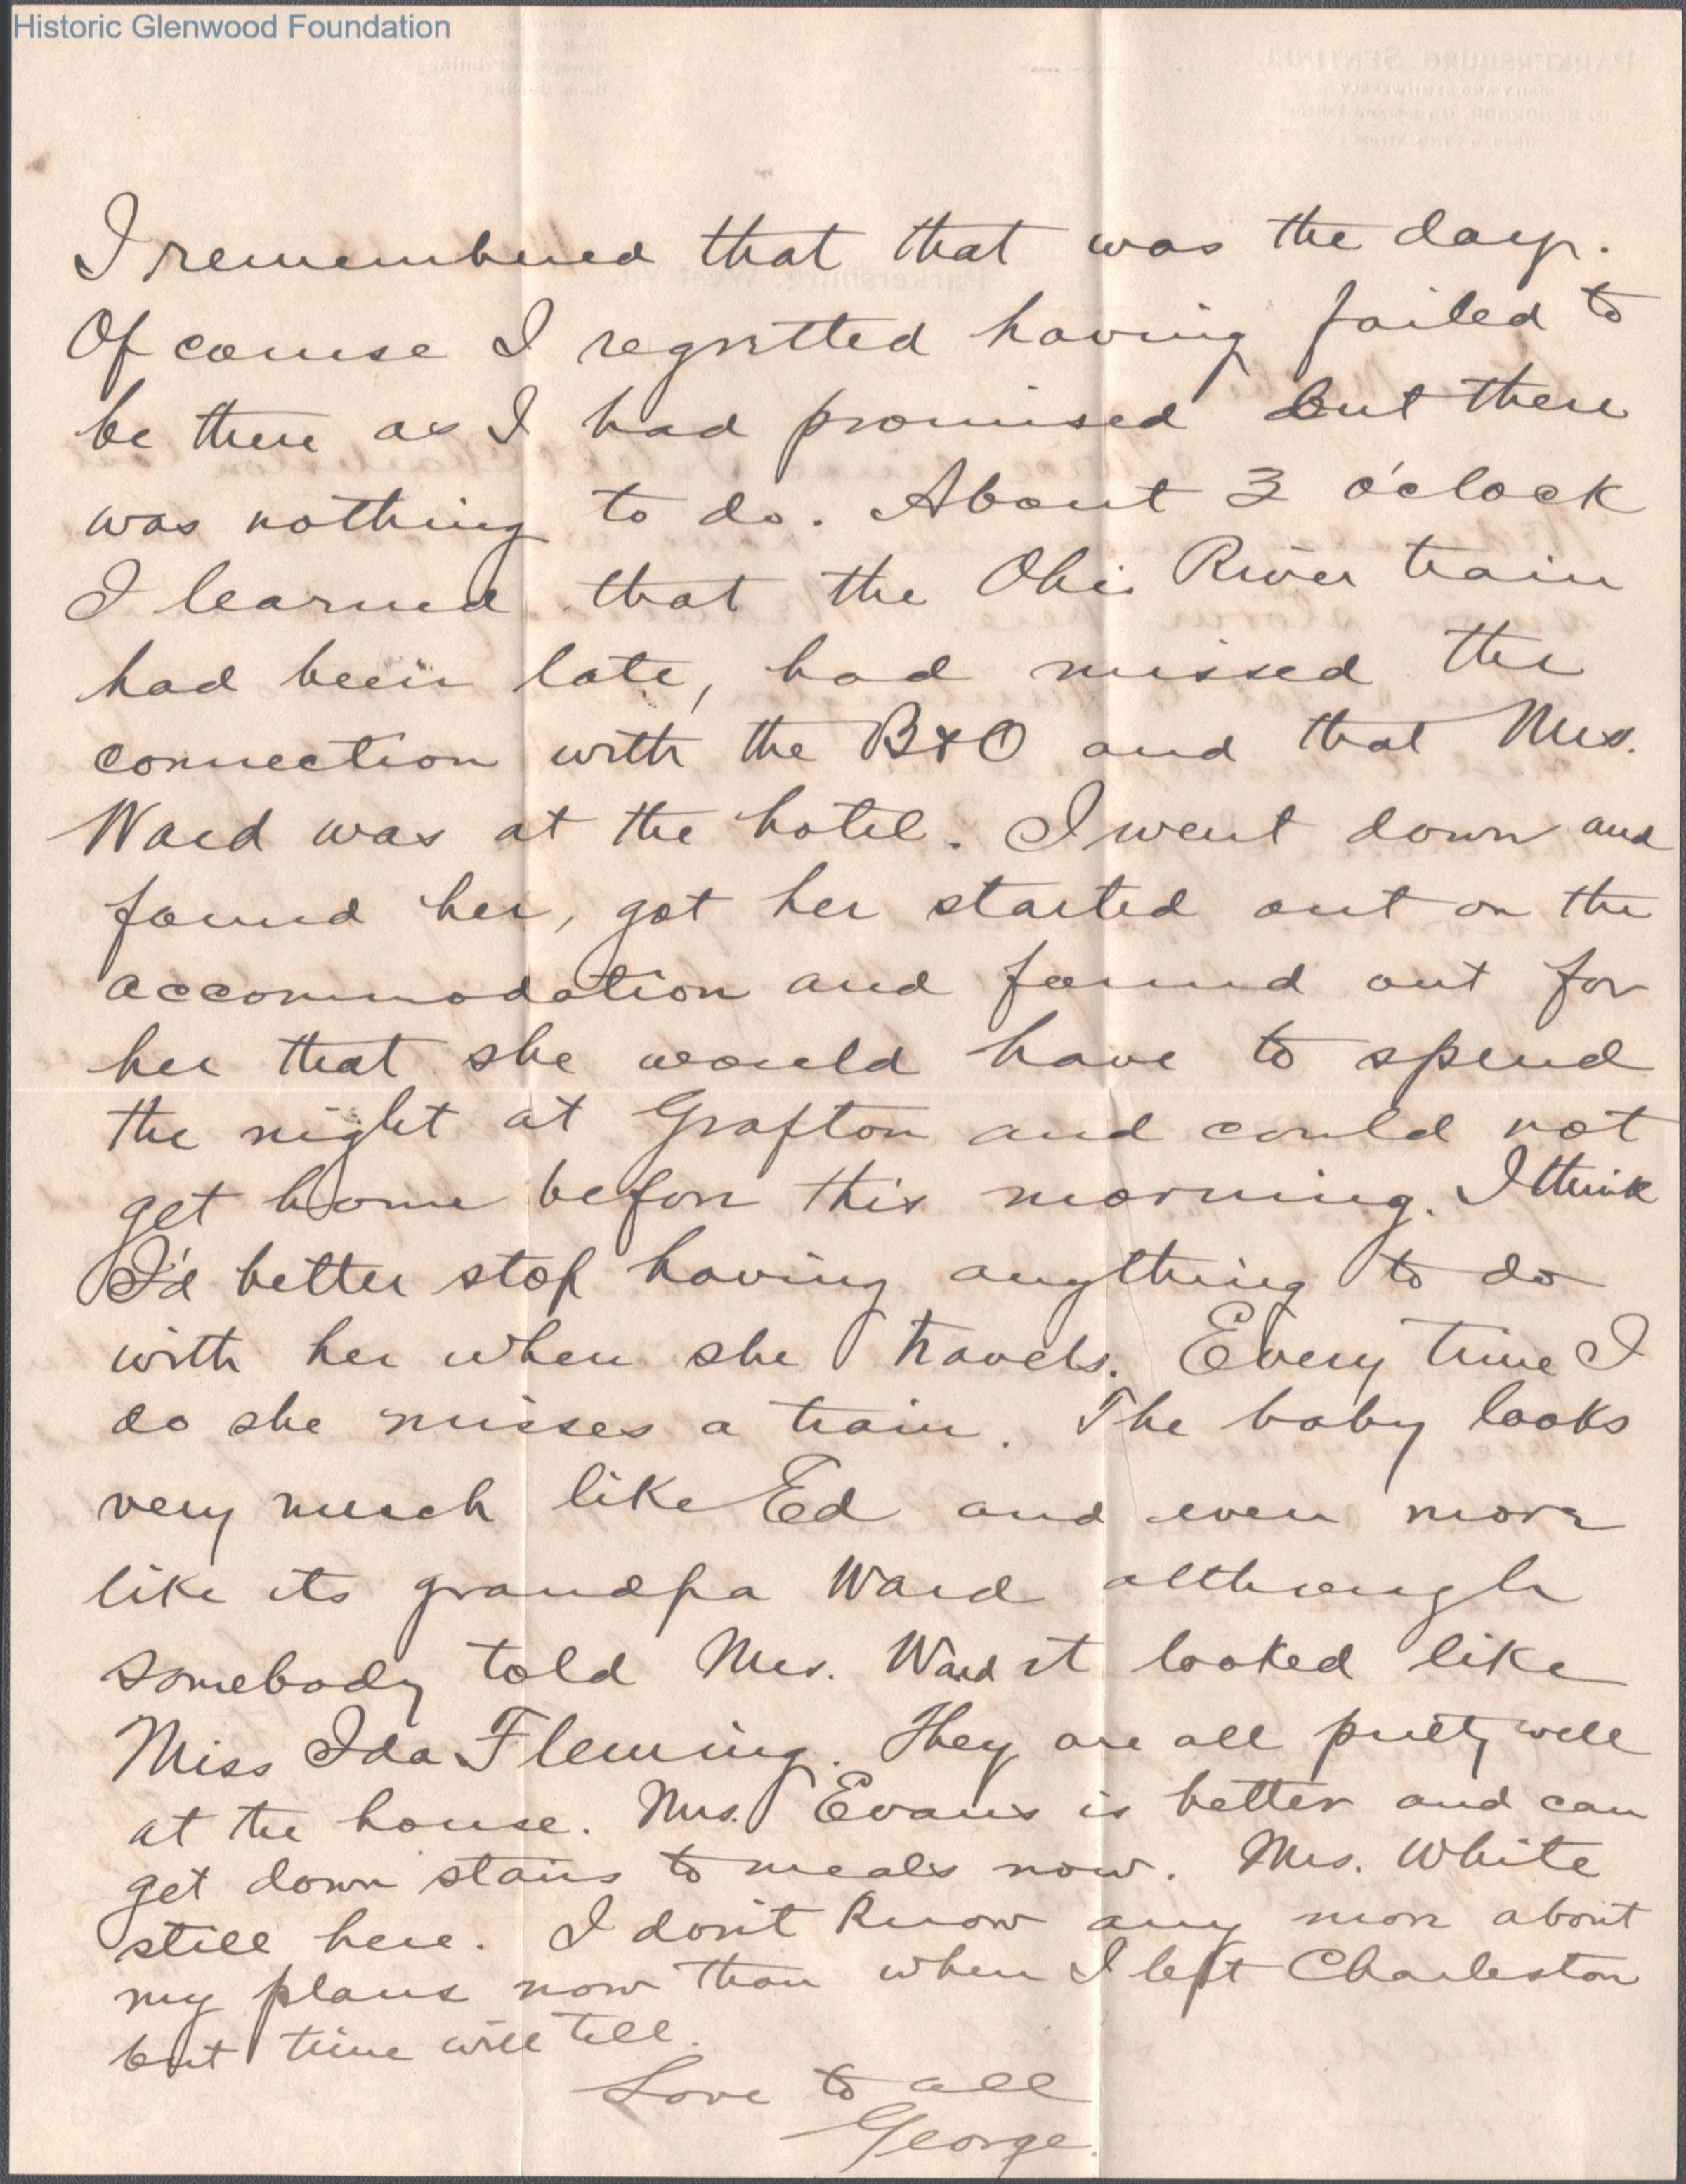 Historic Glenwood Foundation
PARKERSBURG SENTINEL
DAILY AND SEMI-WEEKLY
I remembered that that was the day.
Of course I regretted having failed to
be there as I had promised but there
was nothing to do. About 3 o'clock
I learned that the Ohio River train
had been late, had missed the
connection with the B&O and that Mrs.
Ward was at the hotel. I went down and
found her, got her started out on the
accommodation and found out for
her that she would have to spend
the night at Grafton and could not
get home before this morning. I think
I'd better stop having anything to do
with her when she travels. Every time I
do she misses a train. The baby looks
very much like Ed and even more
like its grandpa Ward although
somebody told Mrs. Ward it looked like
Miss Ida Fleming. They are all pretty well
at the house. Mrs. Evans is better and can
get down stairs to meals now. Mrs. White
still here. I don't know any more about
my plans now than when I left Charleston
but time will tell.
Love to all
George.